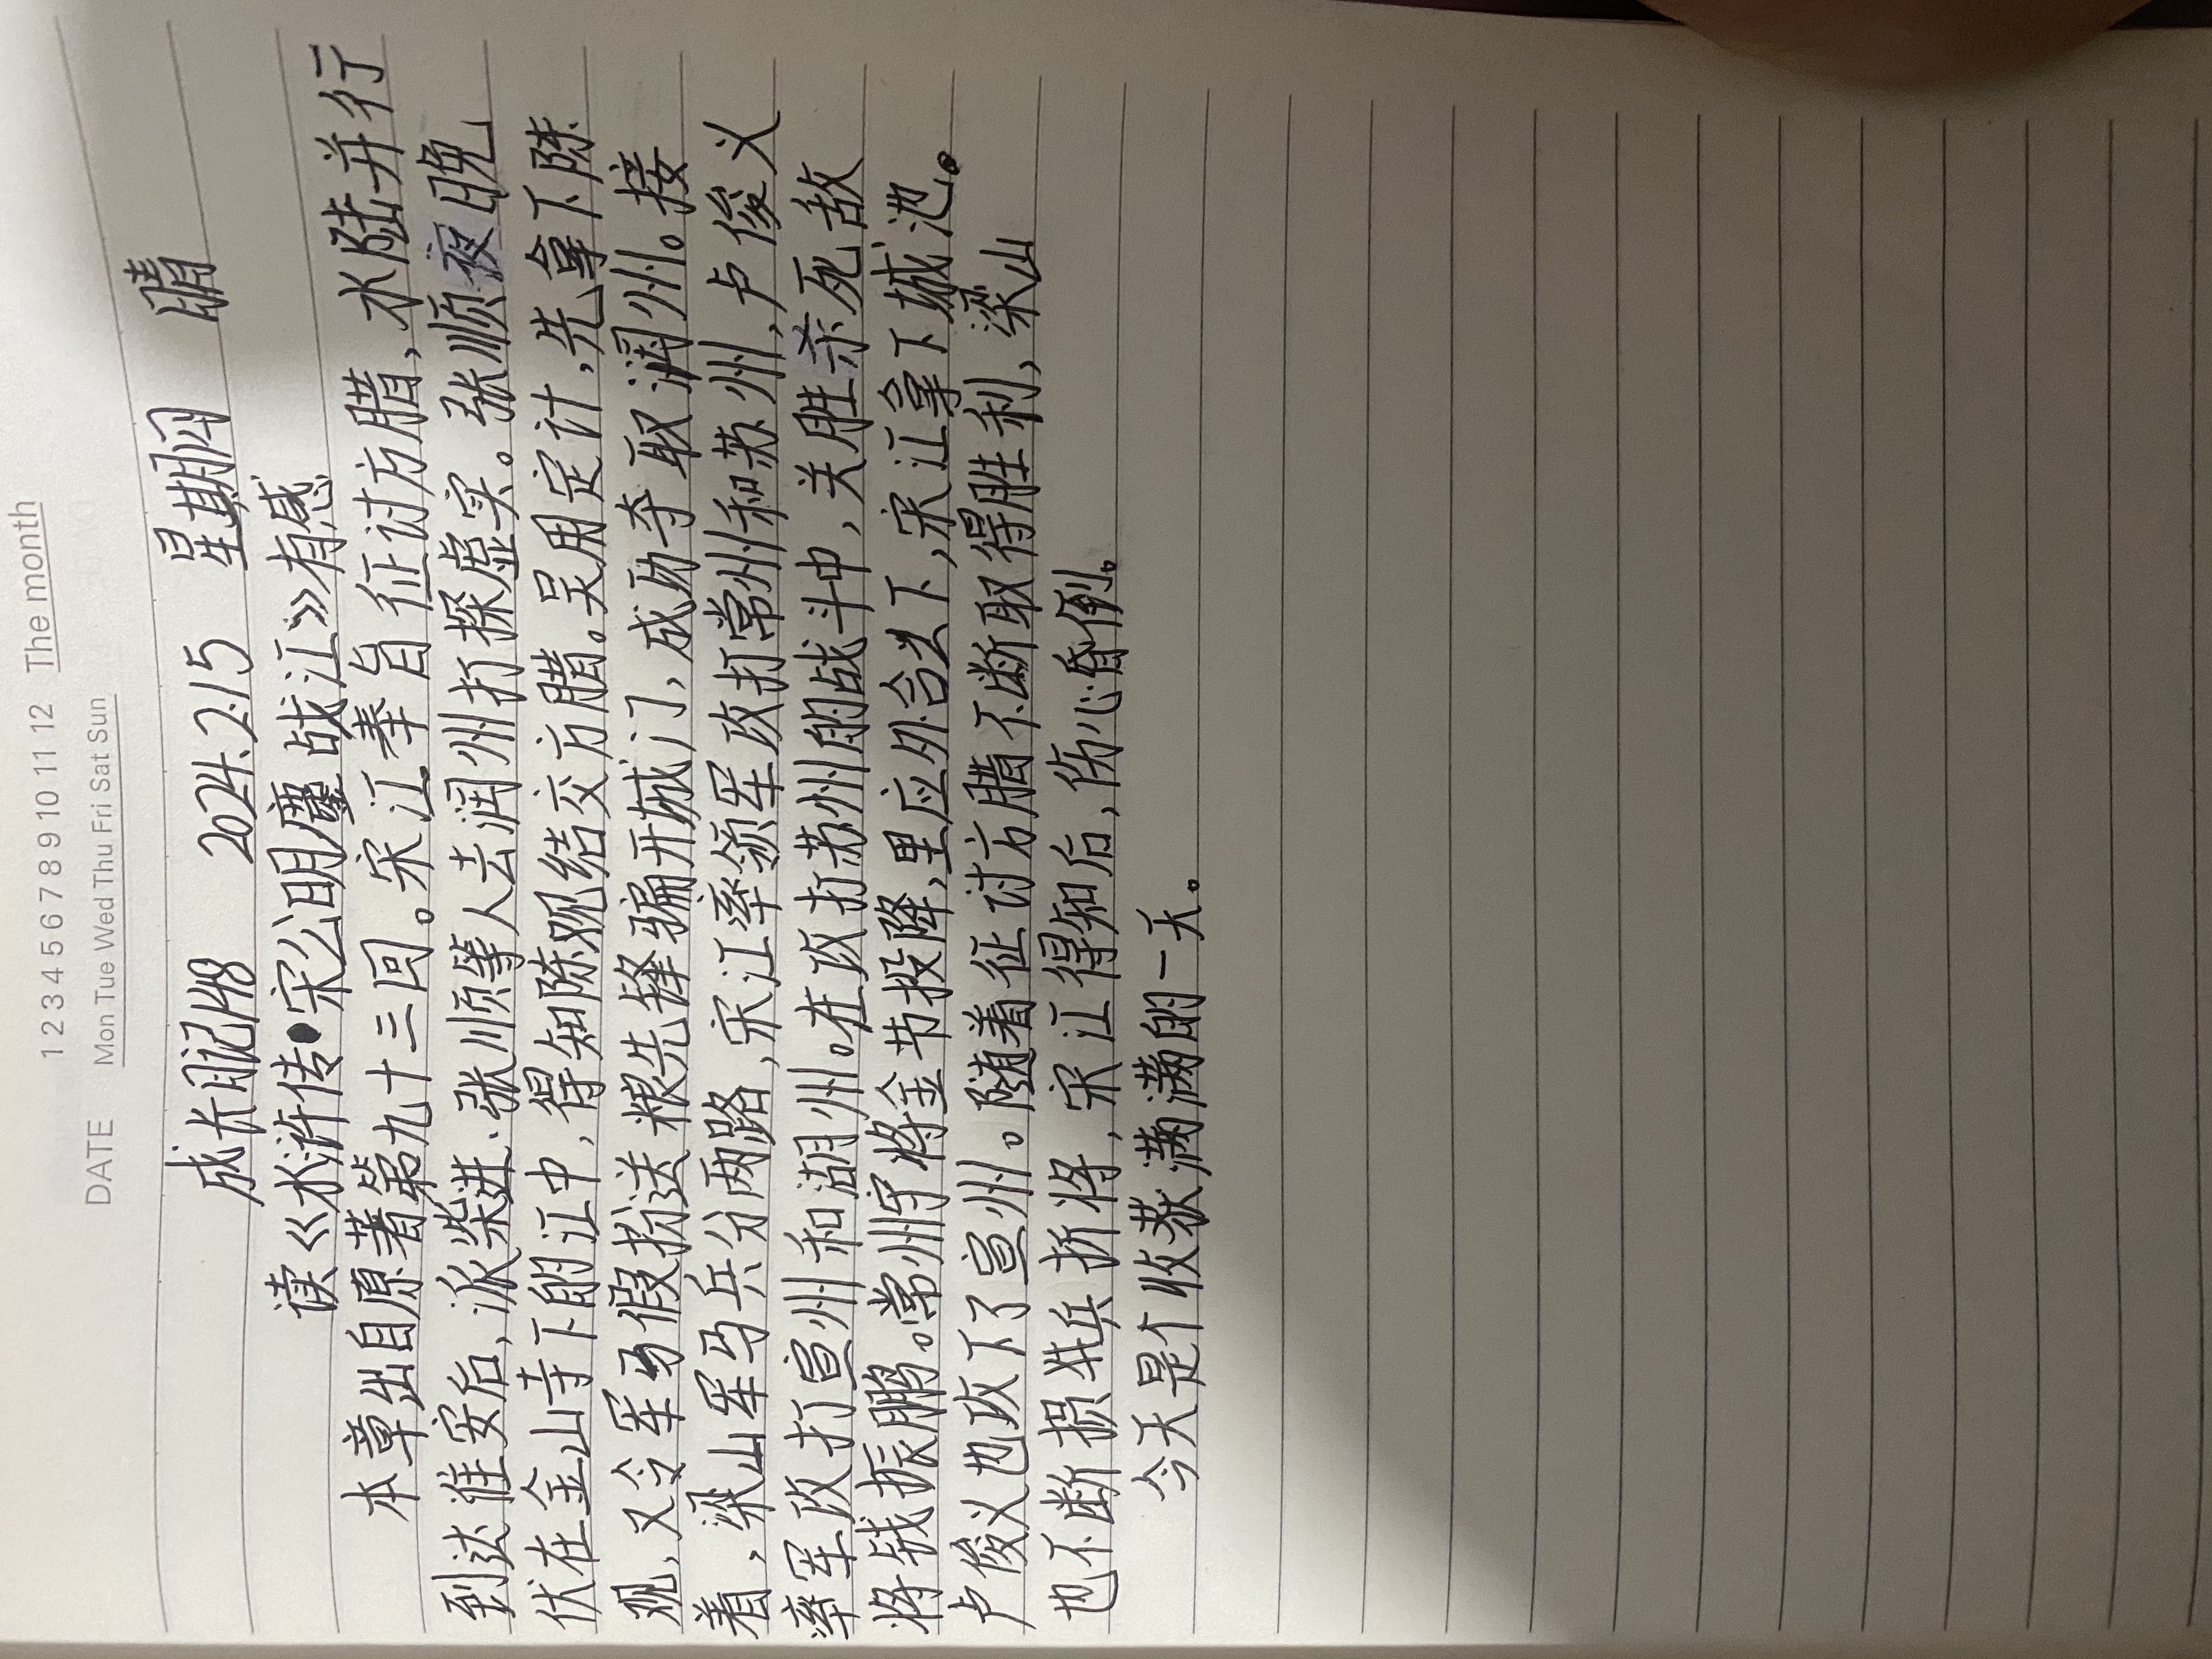 1 2 3 4 5 6 7 8 9 10 11 12 The month
DATE Mon Tue Wed Thu Fri Sat Sun
成长日记148 2024.2.15 星期四 晴
读《水浒传•宋公明鏖战江》有感
本章出自原著第九十三回。宋江奉旨征讨方腊,水陆并行
到达淮安后,派柴进、张顺等人去润州打探虚实。张顺夜晚
伏在金山寺下的江中,得知陈观结交方腊。吴用定计,先拿下陈
观,又令军马假扮送粮先锋骗开城门,成功夺取润州。接
着,梁山军马兵分两路,宋江率领军攻打常州和苏州,卢俊义
率军攻打宣州和湖州。在攻打苏州的战斗中,关胜杀死敌
将钱振鹏。常州守将金节投降,里应外合之下,宋江拿下城池。
卢俊义也攻下了宣州。随着征讨方腊不断取得胜利,梁山
也不断损兵折将,宋江得知后,伤心昏倒。
今天是个收获满满的一天。